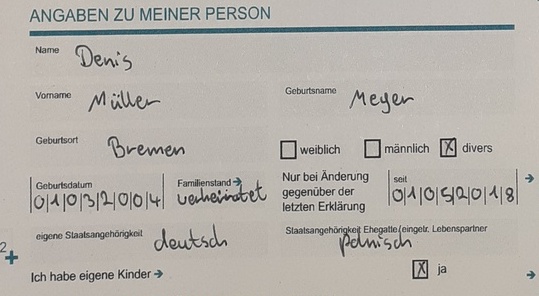 ANGABEN ZU MEINER PERSON
Name Denis
Vorname Müller Geburtsname Meyer
Geburtsort Bremen weiblich männlich X divers
Geburtsdatum 01032004 Familienstand → verheiratet Nur bei Änderung gegenüber der letzten Erklärung seit 01052018 →
eigene Staatsangehörigkeit deutsch Staatsangehörigkeit Ehegatte/eingetr. Lebenspartner polnisch
2
+
Ich habe eigene Kinder → X ja →